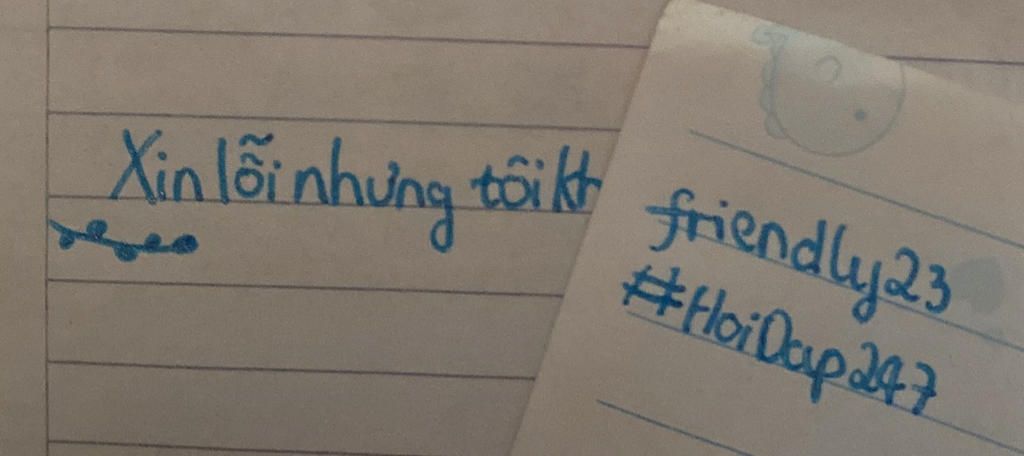 Xin lỗi nhưng tôi kh
friendly23
#HoiDap247